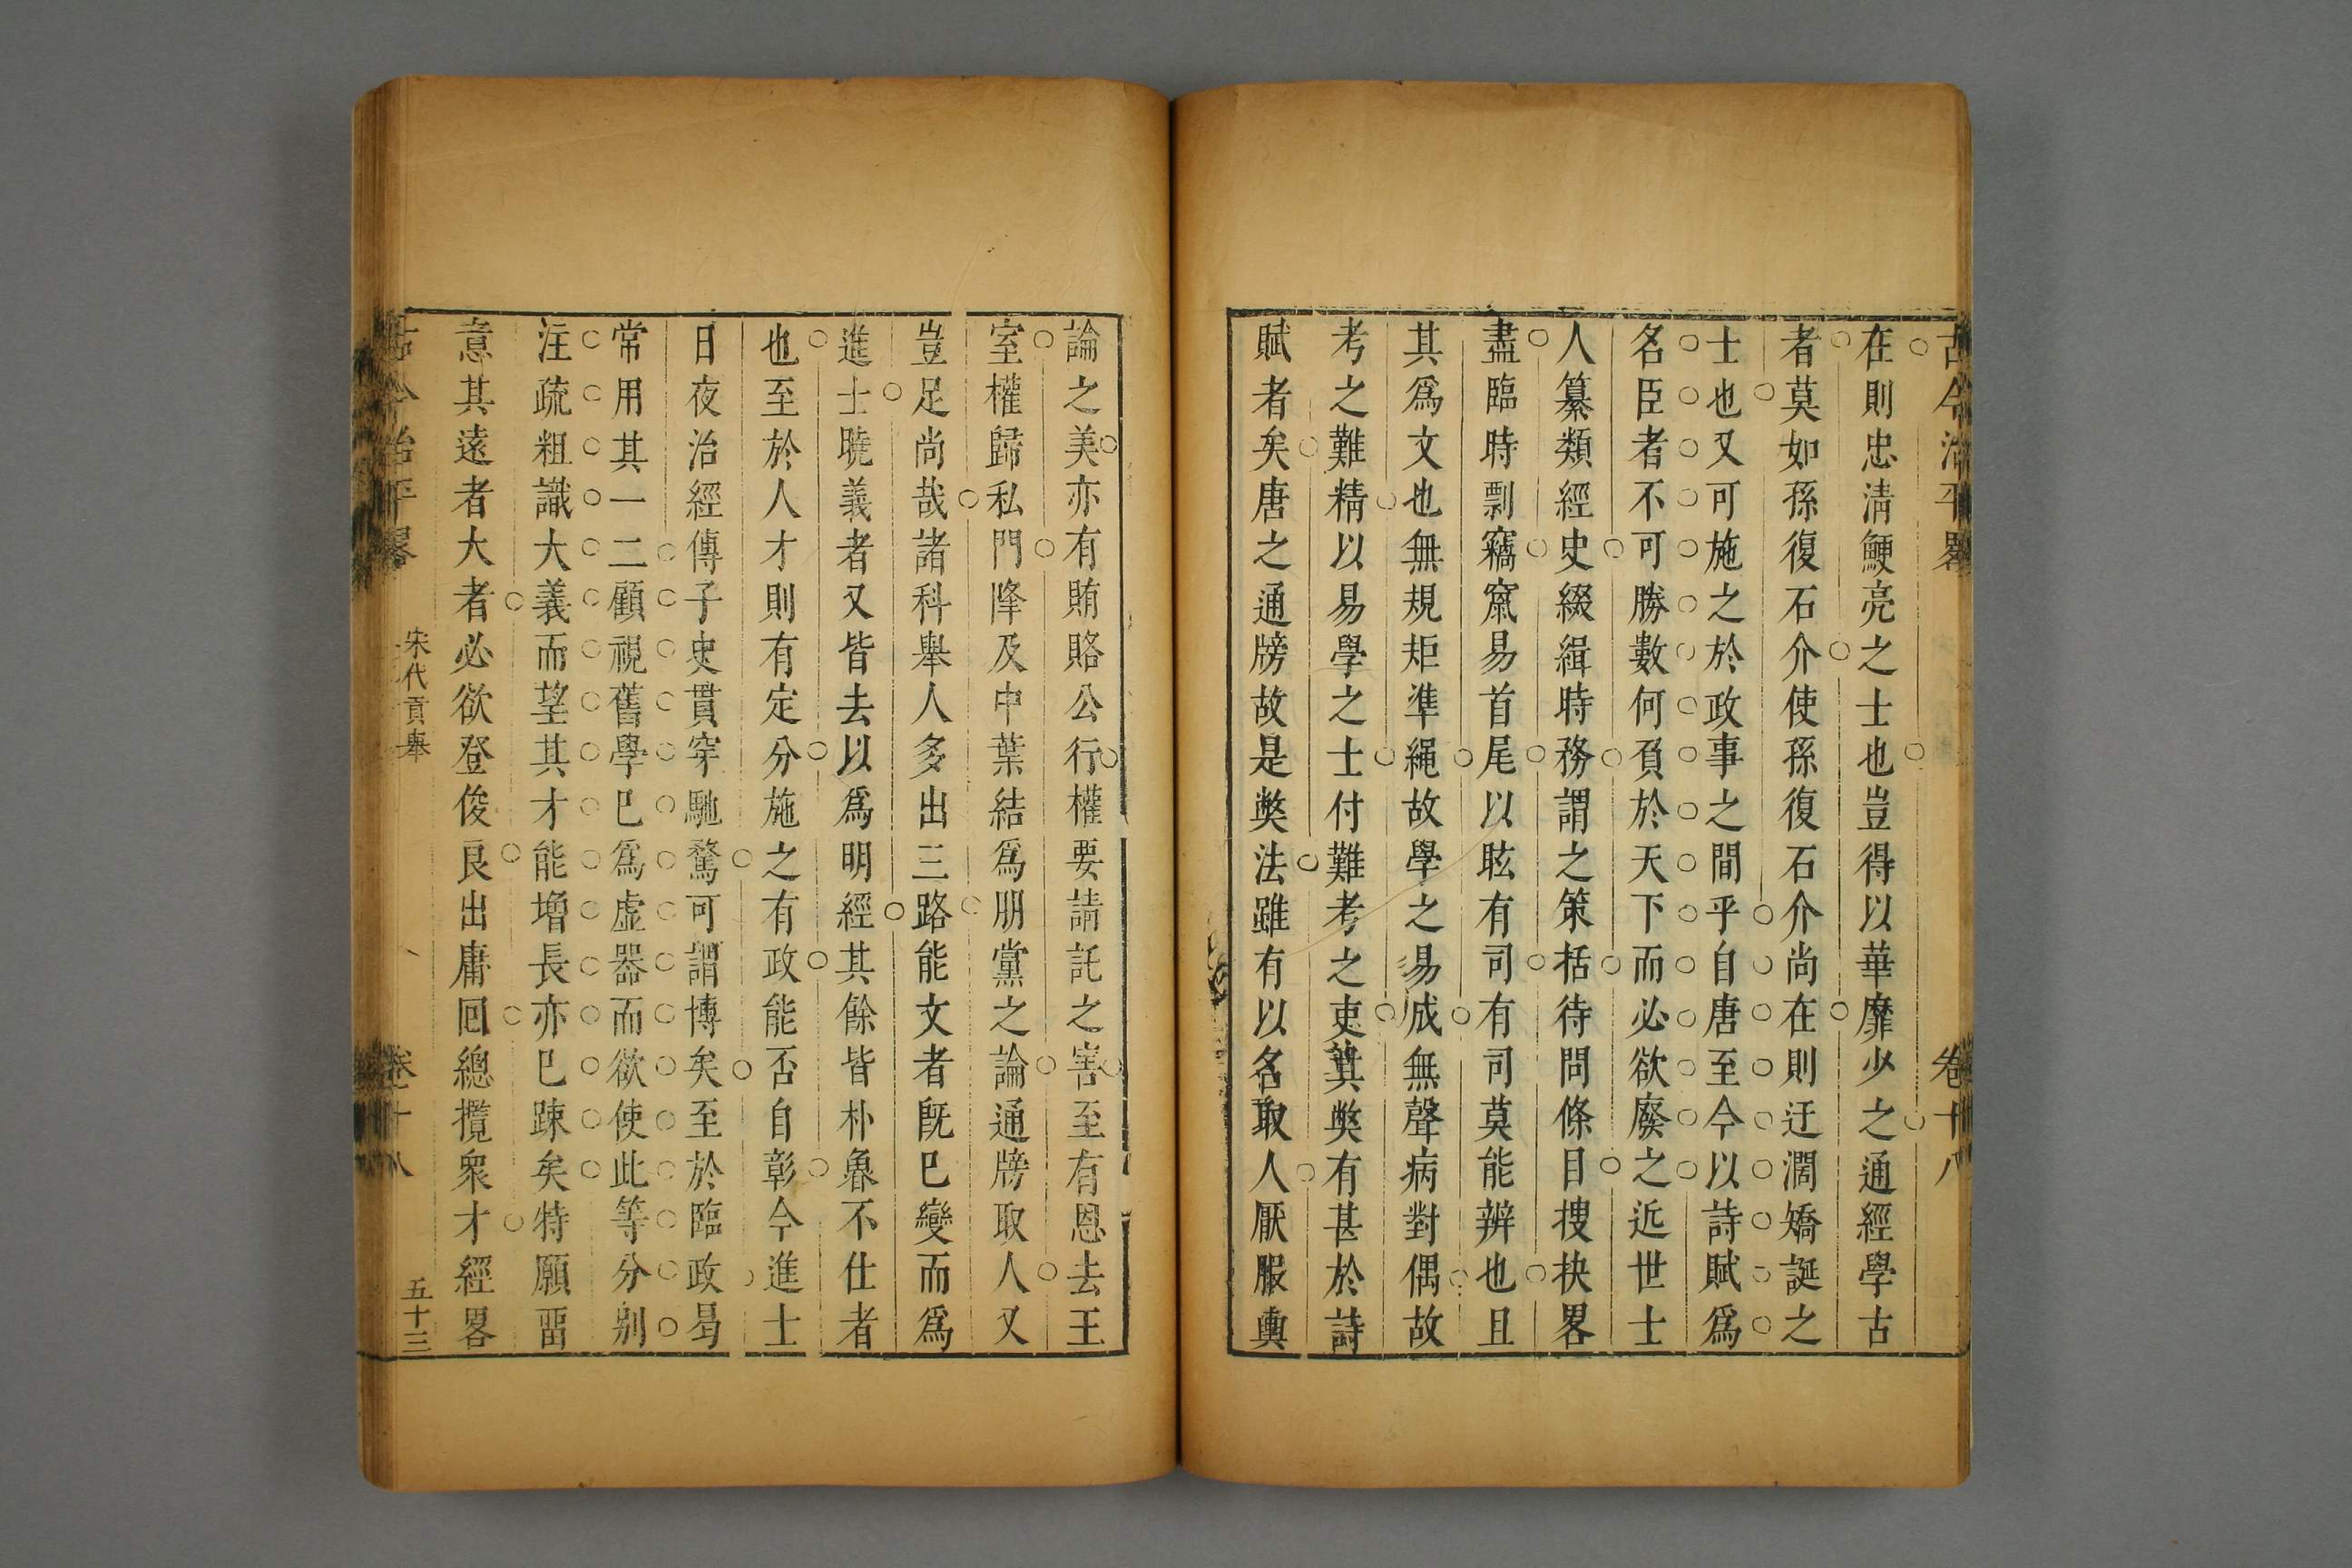 古今治平畧 卷十八
在則忠淸鯁亮之士也豈得以華靡少之通經學古
者莫如孫復石介使孫復石介尚在則迂濶矯誕之
士也又可施之於政事之間乎自唐至今以詩賦爲
名臣者不可勝數何負於天下而必欲廢之近世士
人纂類經史綴緝時務謂之策括待問條目搜抉畧
盡臨時剽竊竄易首尾以眩有司有司莫能辨也且
其爲文也無規矩準繩故學之易成無聲病對偶故
考之難精以易學之士付難考之吏其獘有甚於詩
賦者矣唐之通牓故是獘法雖有以名取人厭服輿
論之美亦有賄賂公行權要請託之害至有恩去王
室權歸私門降及中葉結爲朋黨之論通牓取人又
豈足尚哉諸科舉人多出三路能文者旣已變而爲
進士曉義者又皆去以爲明經其餘皆朴魯不仕者
也至於人才則有定分施之有政能否自彰今進士
日夜治經傳子史貫穿馳騖可謂博矣至於臨政曷
常用其一二顧視舊學已爲虛器而欲使此等分別
注疏粗識大義而望其才能增長亦已踈矣特願畱
意其遠者大者必欲登俊良出庸回總攬衆才經畧
古今治平畧 宋代貢舉 卷十八 五十三